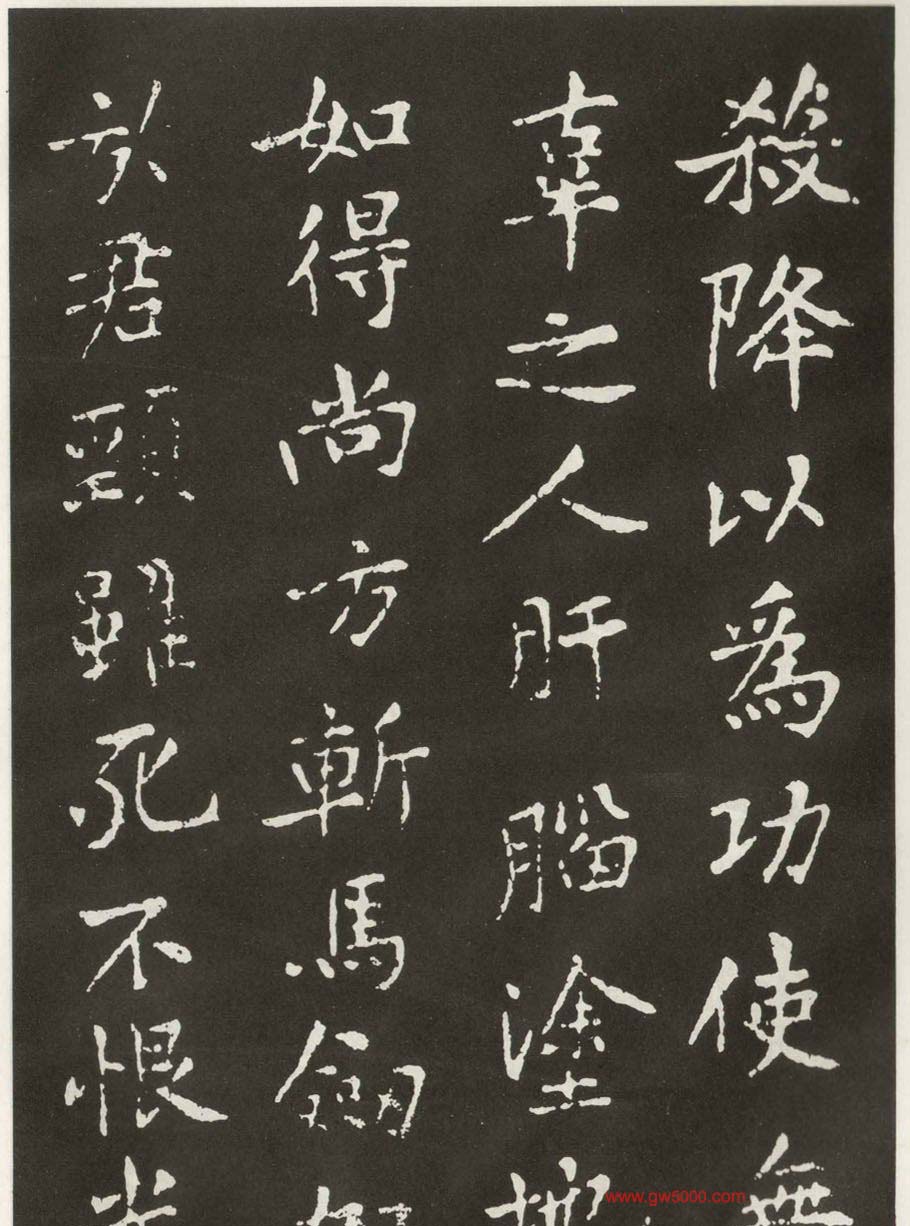 殺降以爲功使無
辜之人肝腦塗地
如得尚方斬馬劍
於君頭雖死不恨
www.gw5000.com